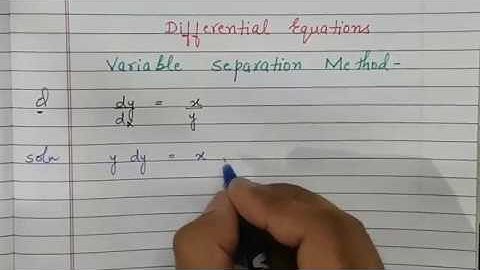 Differential Equations
Variable Separation Method-
d dy/dx = x/y
soln y dy = x